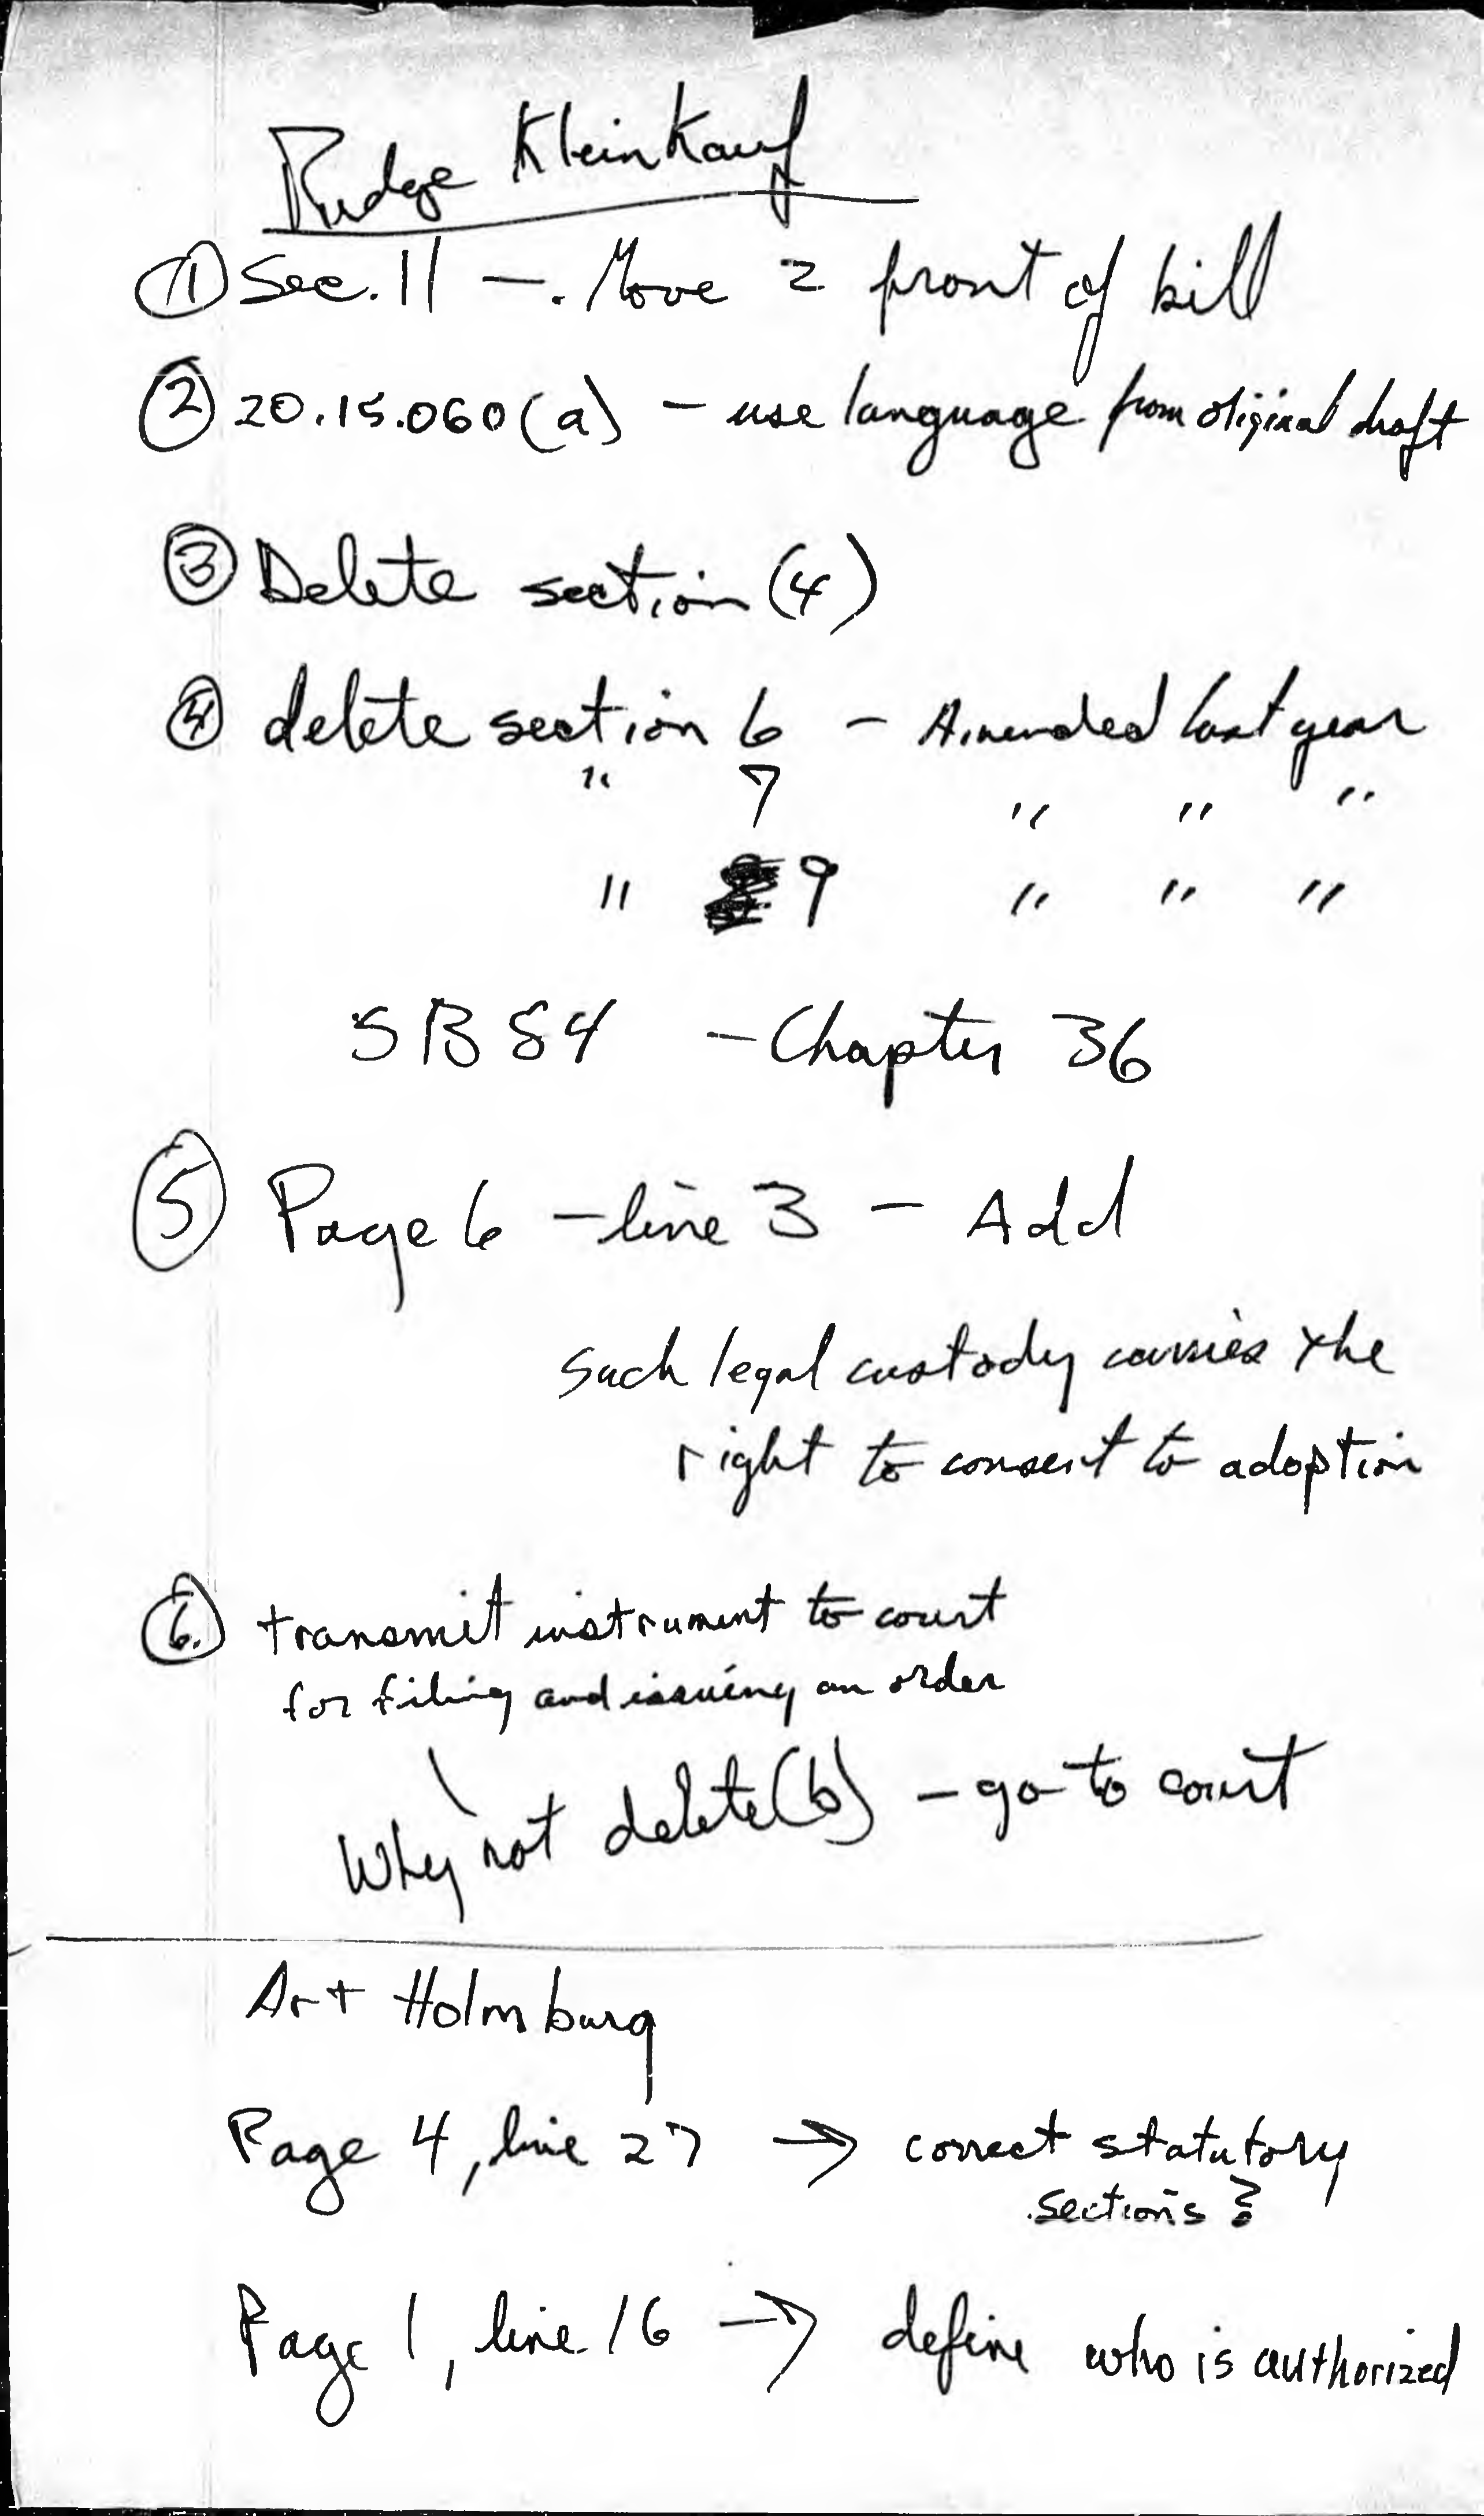 Rudge Kleinkauf
① Sec. 11 — . Move 2 front of bill
② 20.15.060(a) – use language from original draft
③ Delete section (4)
④ delete section 6 – Amended last year
" 7 " " "
" 9 " " "
SB 84 – Chapter 36
⑤ Page 6 – line 3 – Add
such legal custody carries the
right to consent to adoption
⑥. transmit instrument to court
for filing and issuing an order
Why not delete (b) – go to court
Art Holmburg
Page 4, line 27 → correct statutory
sections?
Page 1, line 16 → define who is authorized